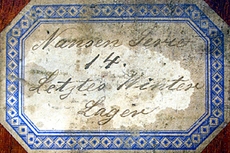 Nansen Serie
14.
Letztes Winter
Lager